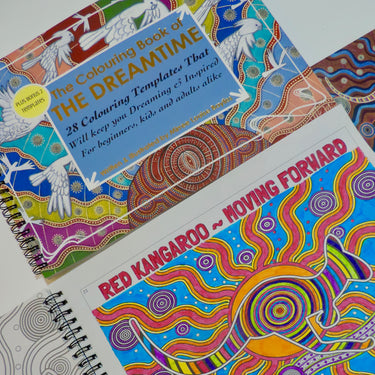 The Colouring Book of
THE DREAMTIME
28 Colouring Templates That
Will keep you Dreaming & Inspired
For beginners, kids and adults alike
PLUS BONUS 2
TEMPLATES
RED KANGAROO ~ MOVING FORWARD